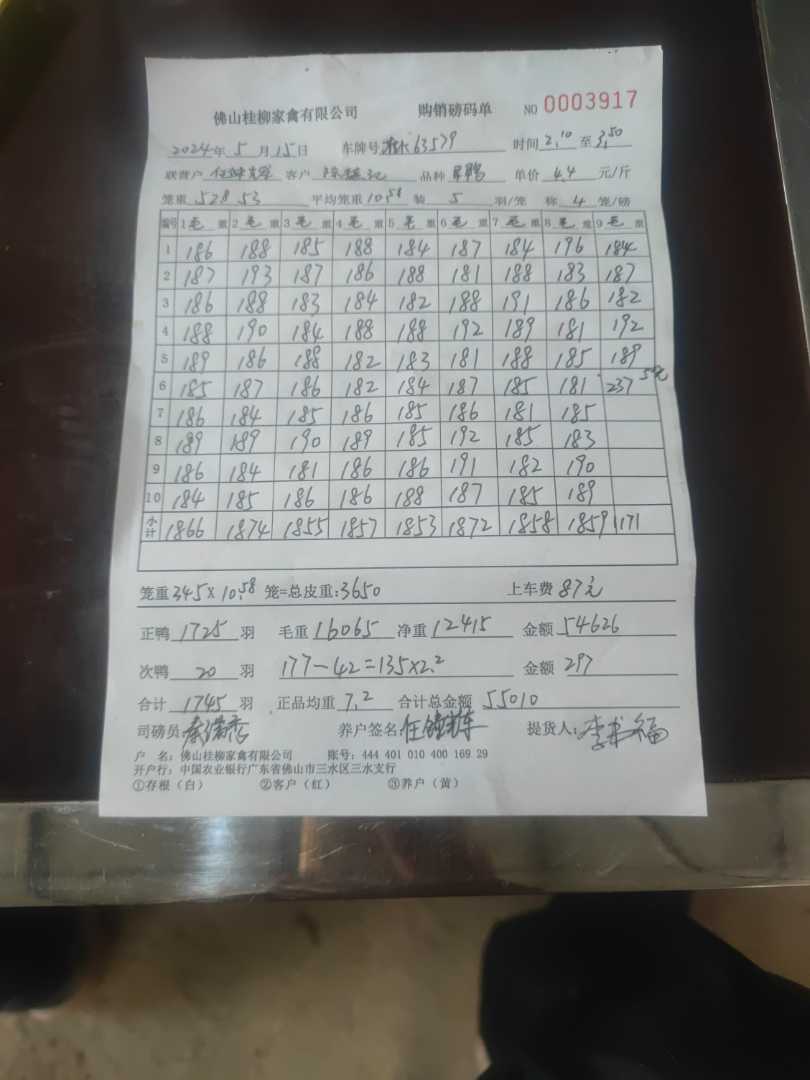 佛山桂柳家禽有限公司 购销磅码单 NO 0003917
2024年5月15日 车牌号 63579 时间2.10至3.50
联营户 客户 品种 单价 4.4 元/斤
笼重 528 53 平均笼重 10.58 装 5 羽/笼 称 4 笼/磅
编号 1毛重 2毛重 3毛重 4毛重 5毛重 6毛重 7毛重 8毛重 9毛重
1 186 188 185 188 184 187 184 196 184
2 187 193 187 186 188 181 188 183 187
3 186 188 183 184 182 188 191 186 182
4 188 190 184 188 188 192 189 181 192
5 189 186 188 182 183 181 188 185 189
6 185 187 186 182 184 187 185 181 237
7 186 184 185 186 185 186 181 185
8 189 189 190 189 185 192 185 183
9 186 184 181 186 186 191 182 190
10 184 185 186 186 188 187 185 189
小计 1866 1874 1855 1857 1853 1872 1858 1859 1171
笼重345×10.58 笼=总皮重:3650 上车费 87元
正鸭 1725 羽 毛重 16065 净重 12415 金额 54626
次鸭 20 羽 177-42=135×2.2 金额 297
合计 1745 羽 正品均重 7.2 合计总金额 55010
司磅员 养户签名 提货人: 李书福
户 名:佛山桂柳家禽有限公司 账号:444 401 010 400 169 29
开户行:中国农业银行广东省佛山市三水区三水支行
①存根(白) ②客户(红) ③养户(黄)